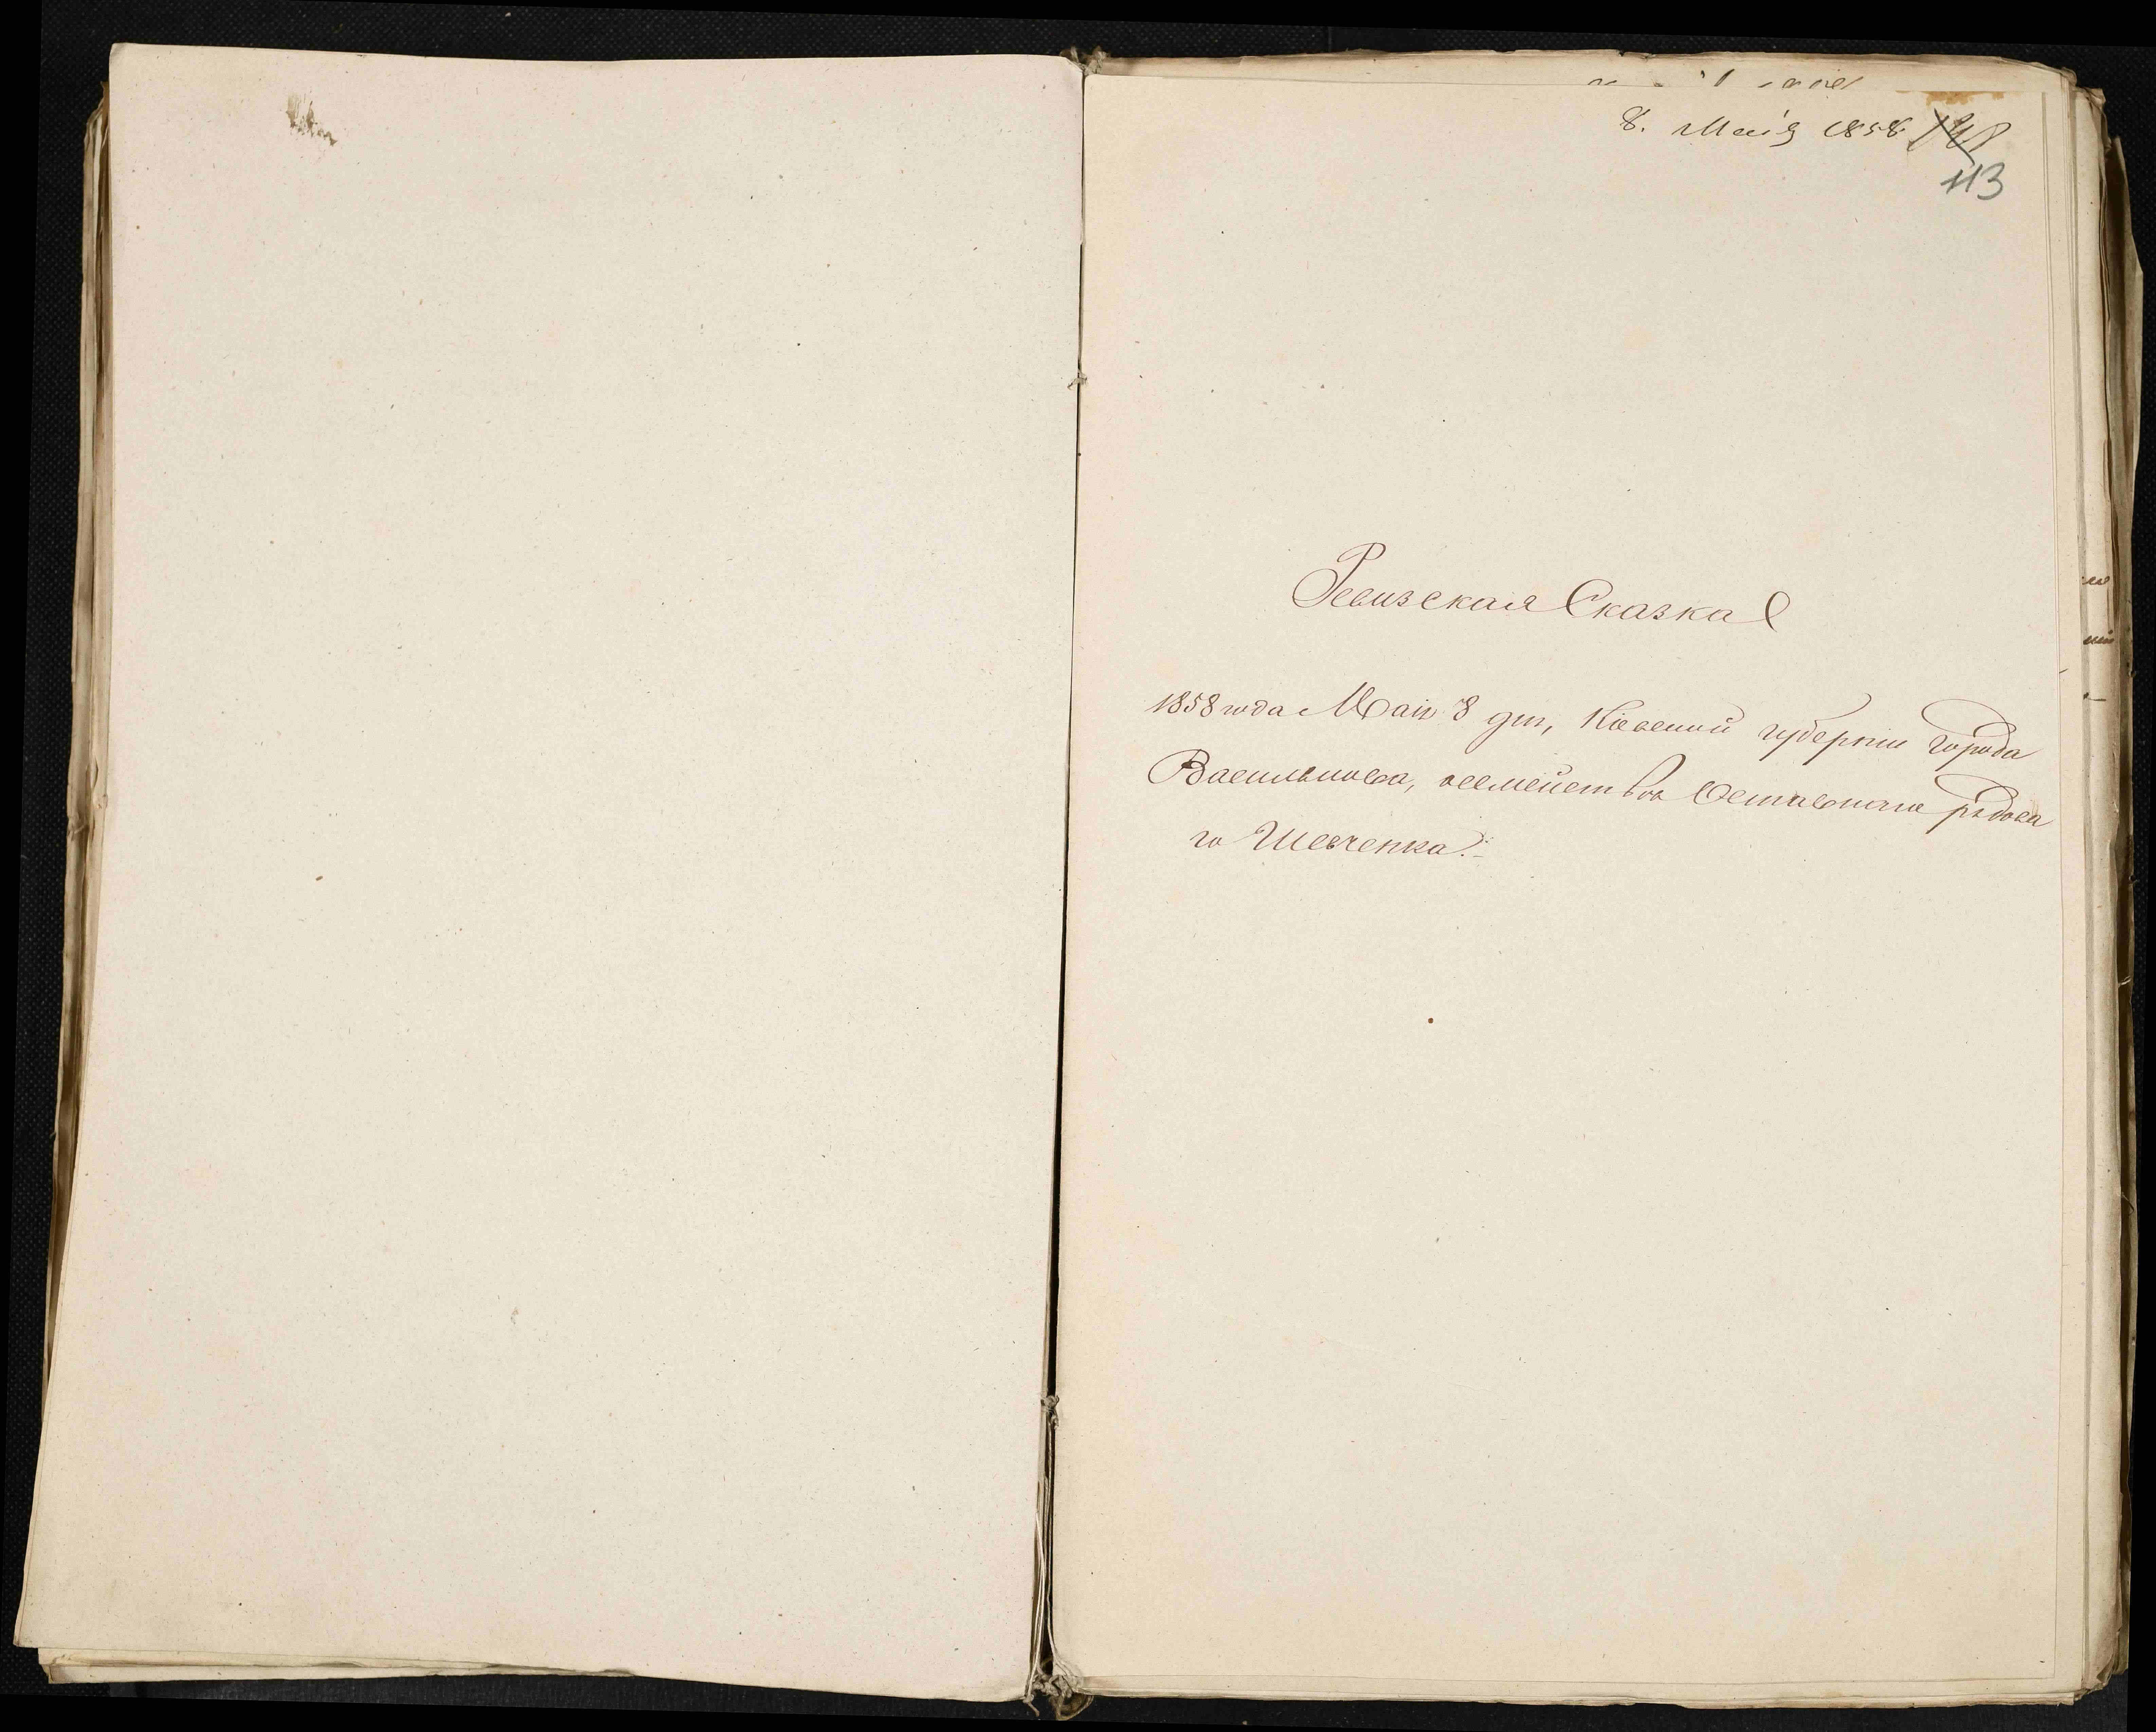 8. Маія 1858
113
Ревизская Сказка
1858 года Маія 8 дня, Кіевской губерніи города
Василькова, о семействѣ Оставнаго рядова
го Шевченка.